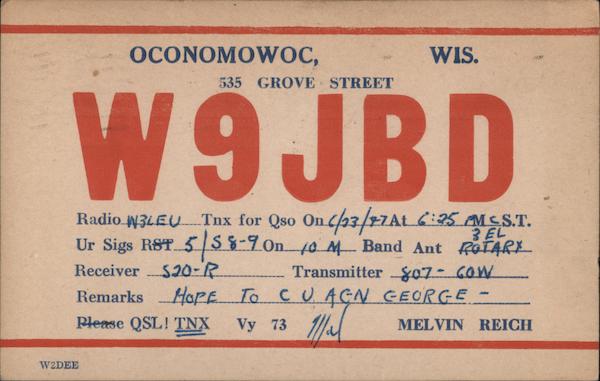 OCONOMOWOC, WIS.
535 GROVE STREET
W9JBD
Radio W3LEU Tnx for Qso On 6/23/47 At 6:25 PM C S.T.
Ur Sigs RST 5/S 8-9 On 10 M Band Ant 3 EL ROTARY
Receiver S20-R Transmitter 807- 60W
Remarks HOPE TO C U AGN GEORGE -
Please QSL! TNX Vy 73 Mel MELVIN REICH
W2DEE